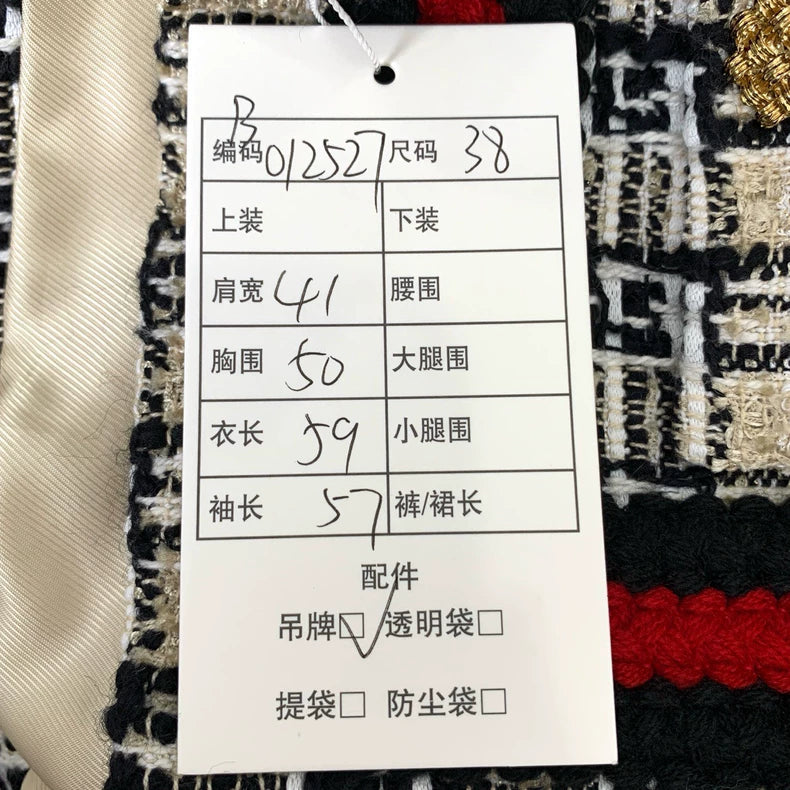 B
编码 012527 尺码 38
上装 下装
肩宽 41 腰围
胸围 50 大腿围
衣长 59 小腿围
袖长 57 裤/裙长
配件
吊牌☑ 透明袋□
提袋□ 防尘袋□